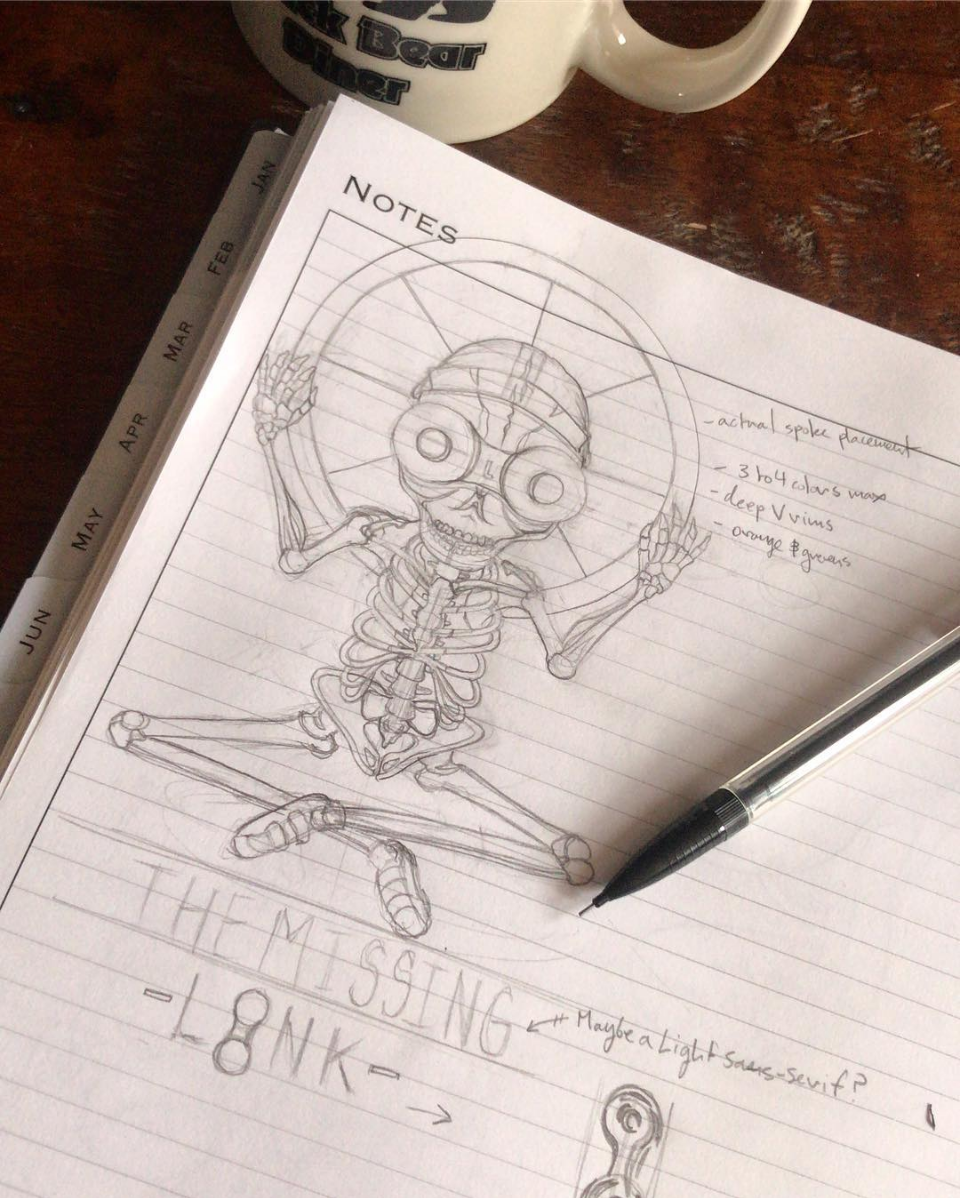 ck Bear
Diner
JAN
FEB
MAR
APR
MAY
JUN
NOTES
- actual spoke placement
- 3 to 4 colors max
- deep V rims
- orange & greens
THE MISSING
- L NK -
Maybe a Light sans-serif?